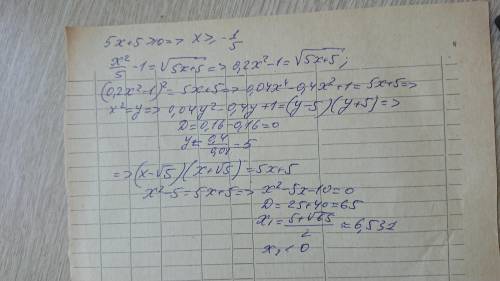 5x+5≥0=> x≥-1/5
x²/5-1=√(5x+5)=>0,2x²-1=√(5x+5);
(0,2x²-1)²=5x+5=>0,04x⁴-0,4x²+1=5x+5=>
x²=y=>0,04y²-0,4y+1=(y-5)(y+5)=>
D=0,16-0,16=0
y=0,4/0,08=5
=>(x-√5)(x+√5)=5x+5
x²-5=5x+5=>x²-5x-10=0
D=25+40=65
x₁=(5+√65)/2≈6,531
x₂<0